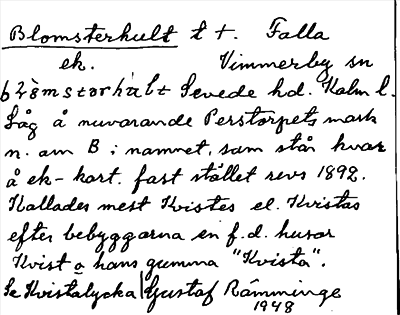 Blomsterhult t t. Falla
ek. Vimmerby sn
Sevede hd. Kalm l.
Låg å nuvarande Perstorpets mark
n. om B; namnet, som står kvar
å ek-kart. fast stället revs 1892.
Kallades mest Kvistes el. Kvistas
efter bebyggarna en f.d. husar
Kvist o hans gumma "Kvista".
Se Kvistalycka Gustaf Rämminge
1948